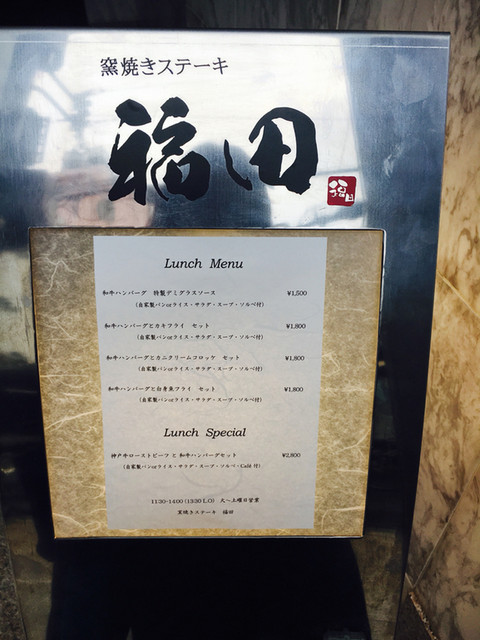 窯焼きステーキ
福田
福田
Lunch Menu
和牛ハンバーグ 特製デミグラスソース ¥1,500
(自家製パンorライス・サラダ・スープ・ソルベ付)
和牛ハンバーグとカキフライ セット ¥1,800
(自家製パンorライス・サラダ・スープ・ソルベ付)
和牛ハンバーグとカニクリームコロッケ セット ¥1,800
(自家製パンorライス・サラダ・スープ・ソルベ付)
和牛ハンバーグと白身魚フライ セット ¥1,800
(自家製パンorライス・サラダ・スープ・ソルベ付)
Lunch Special
神戸牛ローストビーフ と 和牛ハンバーグセット ¥2,800
(自家製パンorライス・サラダ・スープ・ソルベ・Café 付)
11:30-14:00 (13:30 L.O) 火~土曜日営業
窯焼きステーキ 福田